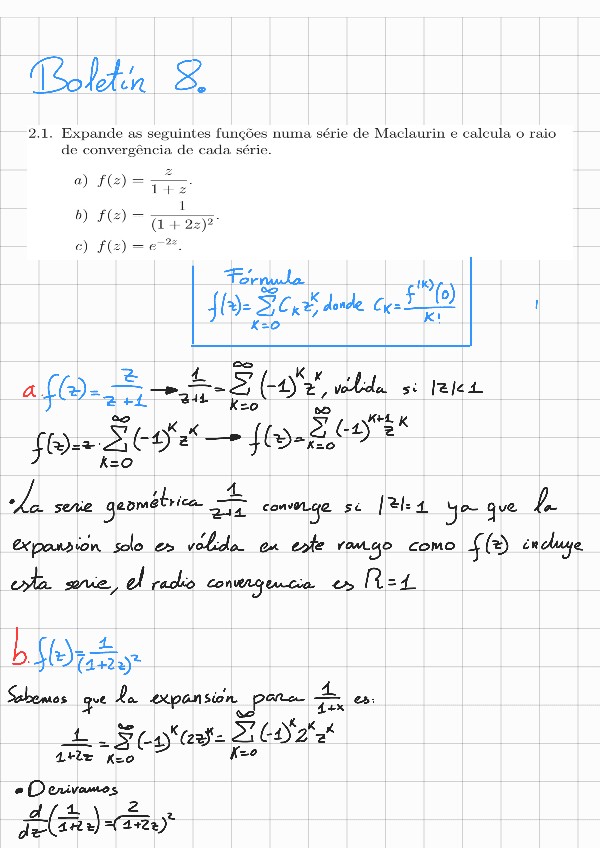 Boletín 8.
2.1. Expande as seguintes funções numa série de Maclaurin e calcula o raio
de convergência de cada série.
a) f(z) = z/(1 + z).
b) f(z) = 1/(1 + 2z)².
c) f(z) = e^{-2z}.
Fórmula
f(z) = ∑_{K=0}^{∞} C_K z^K, donde C_K = f^{(K)}(0)/K!
a. f(z) = z/(z+1) → 1/(z+1) = ∑_{K=0}^{∞} (-1)^K z^K, válida si |z|<1
f(z) = z · ∑_{K=0}^{∞} (-1)^K z^K → f(z) = ∑_{K=0}^{∞} (-1)^{K+1} z^K
• La serie geométrica 1/(z+1) converge si |z|=1 ya que la
expansión solo es válida en este rango como f(z) incluye
esta serie, el radio convergencia es R=1
b. f(z) = 1/(1+2z)²
Sabemos que la expansión para 1/(1+x) es:
1/(1+2z) = ∑_{K=0}^{∞} (-1)^K (2z)^K = ∑_{K=0}^{∞} (-1)^K 2^K z^K
• Derivamos
d/dz (1/(1+2z)) = 2/(1+2z)²